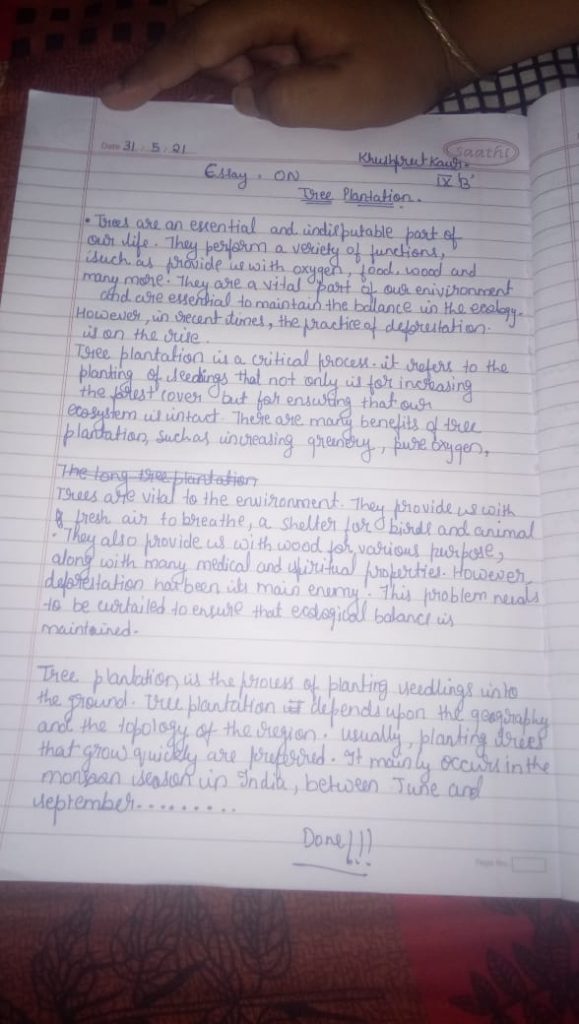 Date 31 . 5 . 21
saathi
Khushpreet Kaur.
Essay . ON
IX 'B'
Tree Plantation.
• Trees are an essential and indisputable part of
our life. They perform a veriety of functions,
such as provide us with oxygen, food, wood and
many more. They are a vital part of our enivironment
and are essential to maintain the ballance in the ecology.
However, in recent times, the practice of deforestation.
is on the rise.
Tree plantation is a critical process. it refers to the
planting of seedings that not only is for increasing
the forest cover but for ensuring that our
ecosystem is intact. There are many benefits of tree
plantation, such as increasing greenery, pure oxygen,
The long tree plantation
Trees are vital to the environment. They provide us with
fresh air to breathe, a shelter for birds and animal
. They also provide us with wood for various purpose,
along with many medical and spiritual properties. However,
deforestation has been its main enemy. This problem needs
to be curtailed to ensure that ecological balance is
maintained.
Tree plantation, is the process of planting seedlings into
the ground. Tree plantation depends upon the geography
and the topology of the region. usually, planting trees
that grow quickly are preferred. It mainly occurs in the
monsoon season in India, between June and
september.........
Done!!!
Page No.